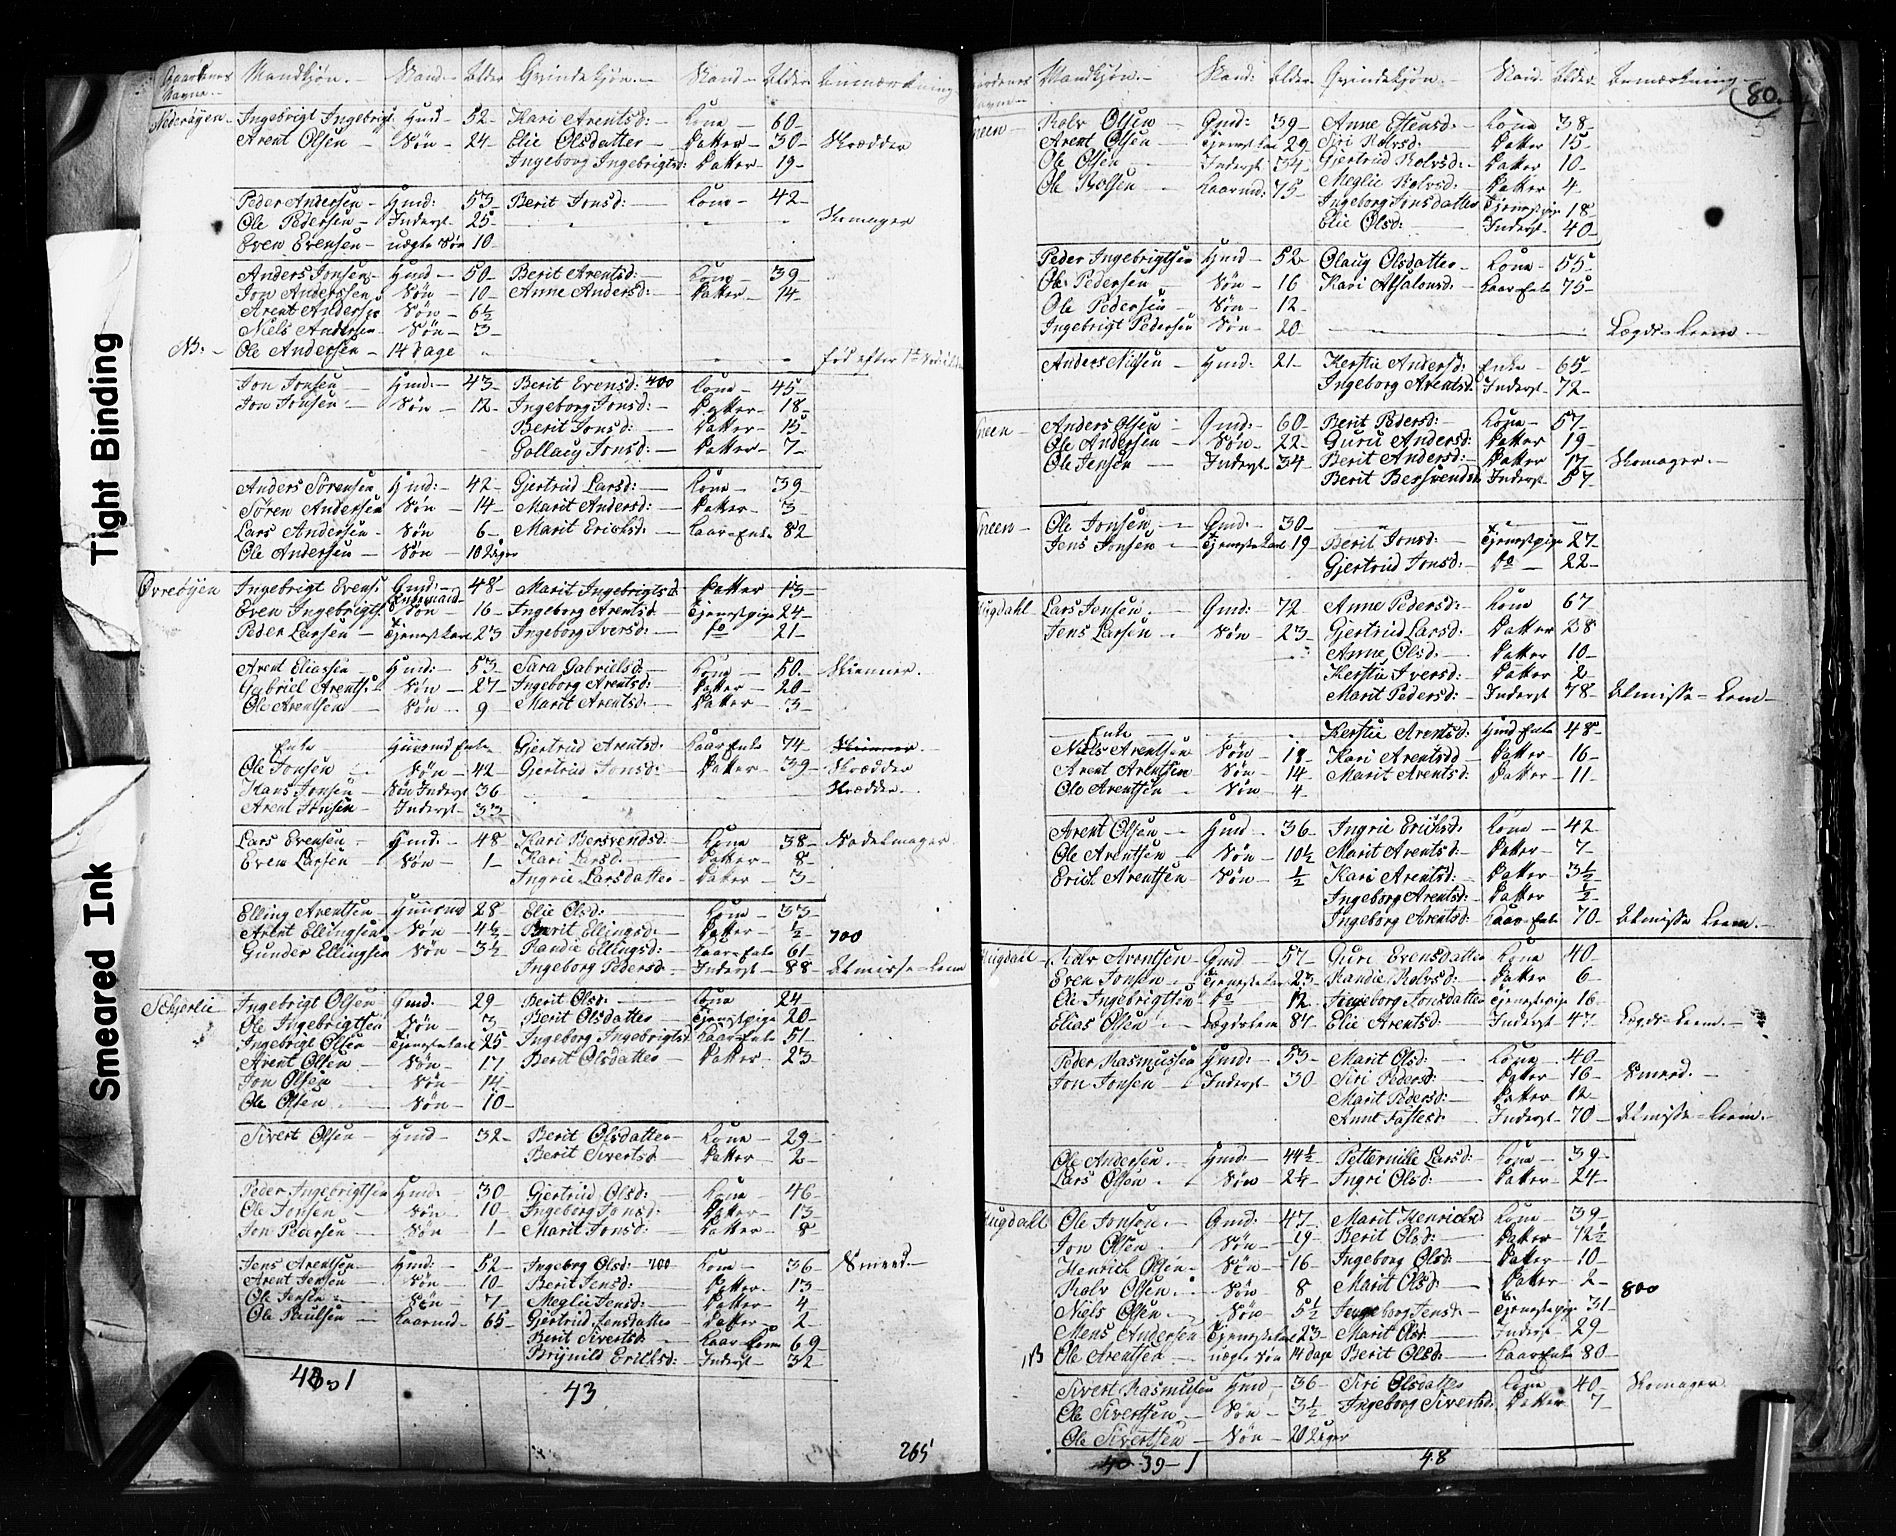 Tight Binding
Smeared Ink
Mandkjøn. Stand. Alder Qvindekjøn. Stand Alder Anmærkning
Nederøyen Ingebrigt Ingebrigts. Hmd 52 Kari Arentsd: Kone 60
Arent Olsen Søn 24 Elie Olsdatter Datter 30 Skrædder
Ingeborg Ingebrigtsd: Datter 19
Peder Andersen Hmd: 53 Berit Jonsd: Kone 42
Ole Pedersen Inderst 25 Skomager
Even Evensen uægte Søn 10
Anders Jonsen Hmd 50 Berit Arentsd: Kone 39
Jon Anderssen Søn 10 Anne Andersd: Datter 14
Arent Anderss Søn 6½
Niels Andersen Søn 3
NB: Ole Andersen 14 Dage
Jon Jonsen Hmd: 43 Berit Evensd: 400 Kone 45
Jon Jonsen Søn 12 Ingeborg Jonsd: Datter 18
Berit Jonsd: Datter 15
Gollaug Jonsd: Datter 7
Anders Sørensen Hmd: 42 Gjertrud Larsd: Kone 39
Søren Andersen Søn 14 Marit Andersd: Datter 3
Lars Andersen Søn 6 Marit Erichsd: Kaar=Enke 82
Ole Andersen Søn 10 Uger
Øvreøyen Ingebrigt Evens. Gmd: 48 Marit Ingebrigtsd Datter 13
Even Ingebrigts. Søn 16 Ingeborg Arentsd Tjenestpige 24
Peder Larsen Tjenestkarl 23 Ingeborg Iversd: Do 21
Arent Eliassen Hmd: 53 Sara Gabrielsd: Kone 50 Skinner.
Gabriel Arents. Søn 27 Ingeborg Arentsd: Datter 20
Ole Arentsen Søn 9 Marit Arentsd: Datter 3
Enke Huusmd Enke Gjertrud Arentsd. Kaar Enke 74 Skinner
Ole Jonsen Søn 42 Gjertrud Jonsd: Datter 39 Skrædder
Hans Jonsen Søn Inderst 36 Skrædder
Arent Jonsen Inderst 33
Lars Evensen Hmd: 48 Kari Bersvendsd: Kone 38 Sadelmager
Even Larsen Søn 1 Kari Larsd. Datter 8
Ingrie Larsdatter Datter 3
Elling Arentsen Huusmd 28 Elie Olsd: Kone 33
Arent Ellingsen Søn 4½ Berit Ellingsd: Datter ½ 700
Gunder Ellingsen Søn 3½ Randie Ellingsd: Kaar=Enke 61
Ingeborg Pedersd: Inderst 88 Almisse=Lem
Schjerlie Ingebrigt Olsen Gmd: 29 Berit Olsd: Kone 24
Ole Ingebrigtsen Søn 3 Berit Olsdatter Tjenestpige 20
Ingebrigt Olsen Tjenestkarl 25 Ingeborg Ingebrigtsd Kaar=Enke 51
Arent Olsen Søn 17 Berit Olsdatter Datter 23
Jon Olsen Søn 14
Ole Olsen Søn 10
Sivert Olsen Hmd 32 Berit Olsdatter Kone 29
Berit Sivertsd Datter 2
Peder Ingebrigtsen Hmd: 30 Gjertrud Olsd: Kone 46
Ole Jonsen Søn 10 Ingeborg Jonsd: Datter 13
Jon Pedersen Søn 1 Marit Jonsd: Datter 8
Jens Arentsen Hmd: 52 Ingebrg Olsd: 200 Kone 36 Smeed
Arent Jensen Søn 10 Berit Jensd: Datter 13
Ole Jensen Søn 7 Meglie Jensd: Datter 4
Ole Paulsen Kaarmd 65 Gjertrud Jensdatter Datter 2
Berit Sivertsd Kaar=Kone 69
Brynild Erichsd: Inderst 32
1
43
265
Mandkjøn. Stand: Alder Qvindekjøn. Stand Alder Anmærkning
80.
neen Rolv Olsen Gmd: 39 Anne Estensd: Kone 38
Arent Olsen Tjenestkarl 29 Siri Rolvsd: Datter 15
Ole Olsen Inderst 34 Gjertrud Rolvsd: Datter 10
Ole Rolsen Kaarmd: 75 Meglie Rolvsd: Datter 4
Ingeborg Jonsdatter Tjenestpige 18
Elie Olsd: Inderst 40
Peder Ingebrigtsen Hmd 52 Olaug Olsdatter Kone 55
Ole Pedersen Søn 16 Kari Absalonsd: Kaar=Enke 75
Ole Pedersen Søn 12
Ingebrigt Pedersen Søn 20 Lægds=Leem
Anders Nilsen Hmd: 21 Kerstie Andersd: Enke 65
Ingeborg Arentsd: Inderst 72
neen Anders Olsen Gmd: 60 Berit Pedersd: Kone 57
Ole Andersen Søn 22 Guru Andersd: Datter 19
Ole Jensen Inderst 34 Berit Andersd: Datter 17 Skomager.
Berit Bersvendsd Inderst 57
neen Ole Jonsen Gmd: 30
Jens Jonsen Tjenestekarl 19 Berit Jonsd: Tjenestpige 27
Gjertrud Jonsd: Do 22
ugdahl Lars Jensen Gmd: 72 Anne Pedersd: Kone 67
Jens Larsen Søn 23 Gjertrud Larsd: Datter 28
Anne Olsd: Datter 10
Kerstie Iversd: Datter 2
Marit Pedersd: Inderst 78 Almisse=Lem
Enke Kerstie Arentsd: Hmd Enke 48
Niels Arentsen Søn 18 Kari Arentsd Datter 16
Arent Arentsen Søn 14 Marit Arentsd: Datter 11
Ole Arentsen Søn 4
Arent Olsen Hmd 36 Ingrie Erichsd. Kone 42
Ole Arentsen Søn 10½ Marit Arentsd: Datter 7
Erich Arentsen Søn ½ Kari Arentsd: Datter 3½
Ingeborg Arentsd: Datter ½
Ingeborg Arentsd: Kaar=Enke 70 Almisse Leem.
ugdall Rolv Arentsen Gmd 57 Guru Evensdatter Kone 40
Even Jonsen Tjenestkarl 23 Randie Rolvsd: Datter 6
Ole Ingebrigtsen Do 12 Ingeborg Jonsdatter Tjenestpige 16
Elias Olsen Lægdslem 84 Elie Arentsd: Inderst 47 Lægds=Leem.
Peder Rasmussen Hmd: 53 Marit Olsd: Kone 40
Jon Jonsen Inderst 30 Siri Pedersd: Datter 16 Smeed.
Marit Pedersd: Datter 12
Anne Fastesd: Inderst 70 Almisse=Leem.
Ole Andersen Hmd: 44½ Petternille Larsd: Kone 39
Lars Olsen Søn 2¼ Ingri Olsd: Datter 24
ugdall Ole Jonsen Gmd: 47 Marit Henrichsd: Kone 39
Jon Olsen Søn 19 Berit Olsd: Datter 12½
Henrich Olsen Søn 16 Ingeborg Olsd: Datter 10
Rolv Olsen Søn 8 Marit Olsd: Datter 2 800
Niels Olsen Søn 5½ Ingeborg Jensd: Tjenestepige 31
Mens Andersen Tjenestekarl 23 Marit Olsd: Inderst 29
NB Ole Arentsen uægte Søn 14 Dage Berit Olsd: Kaar=Enke 80
Sivert Rasmussen Hmd 36 Siri Olsdatter Kone 40 Skomager
Ole Sivertsen Søn 3½ Ingeborg Sivertsd: Datter 7
Ole Sivertsen Søn 20 Uger
40 39-1 48